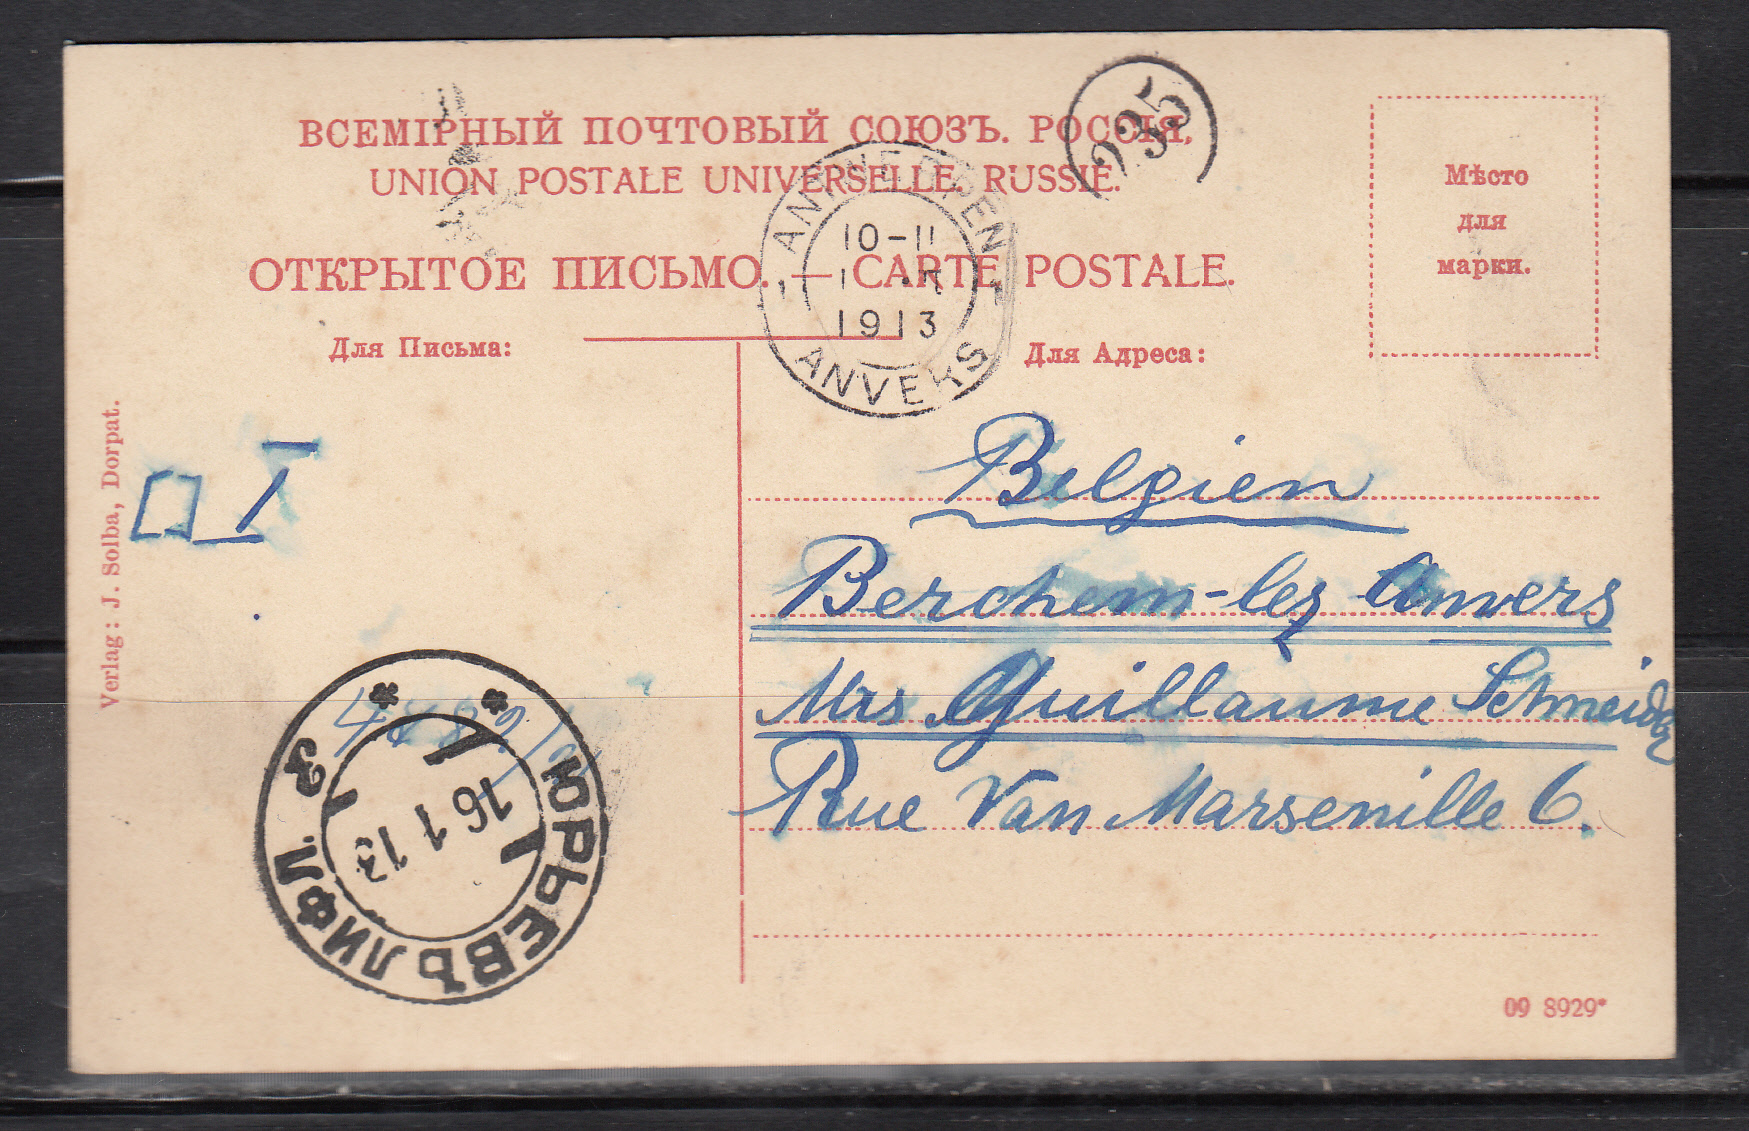 ВСЕМІРНЫЙ ПОЧТОВЫЙ СОЮЗЪ. РОССІЯ.
UNION POSTALE UNIVERSELLE. RUSSIE.
ОТКРЫТОЕ ПИСЬМО. — CARTE POSTALE.
Для Письма:
Для Адреса:
Мѣсто
для
марки.
235
ANTWERPEN
10-11
1913
ANVERS
Belgien
Berchem-lez Anvers
Mrs Guillaume Schneider
Rue Van Marsenille 6.
Verlag: J. Solba, Dorpat.
ЮРЬЕВЪ ЛИФЛ.
16 1 13
09 8929*